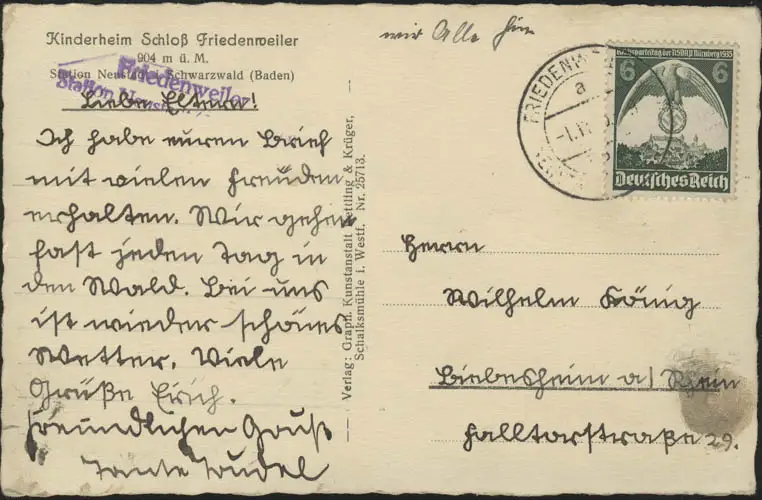 Kinderheim Schloß Friedenweiler
904 m ü. M.
Station Neustadt i. Schwarzwald (Baden)
Friedenweiler
Station Neustadt
Liebe Eltern!
Ich habe euren Brief
mit vielen Freuden
erhalten. Wir gehen
fast jeden Tag in
den Wald. Bei uns
ist wieder schönes
Wetter. Viele
Grüße Erich.
Freundlichen Gruß
Tante Trudel
Verlag: Graph. Kunstanstalt Kettling & Krüger,
Schalksmühle i. Westf. Nr. 25713.
wir Alle hier
FRIEDENW
a
Reichsparteitag der NSDAP Nürnberg 1935
6 6
Deutsches Reich
Herrn
Wilhelm König
Biebesheim a/ Rhein
Falltorstraße 29.